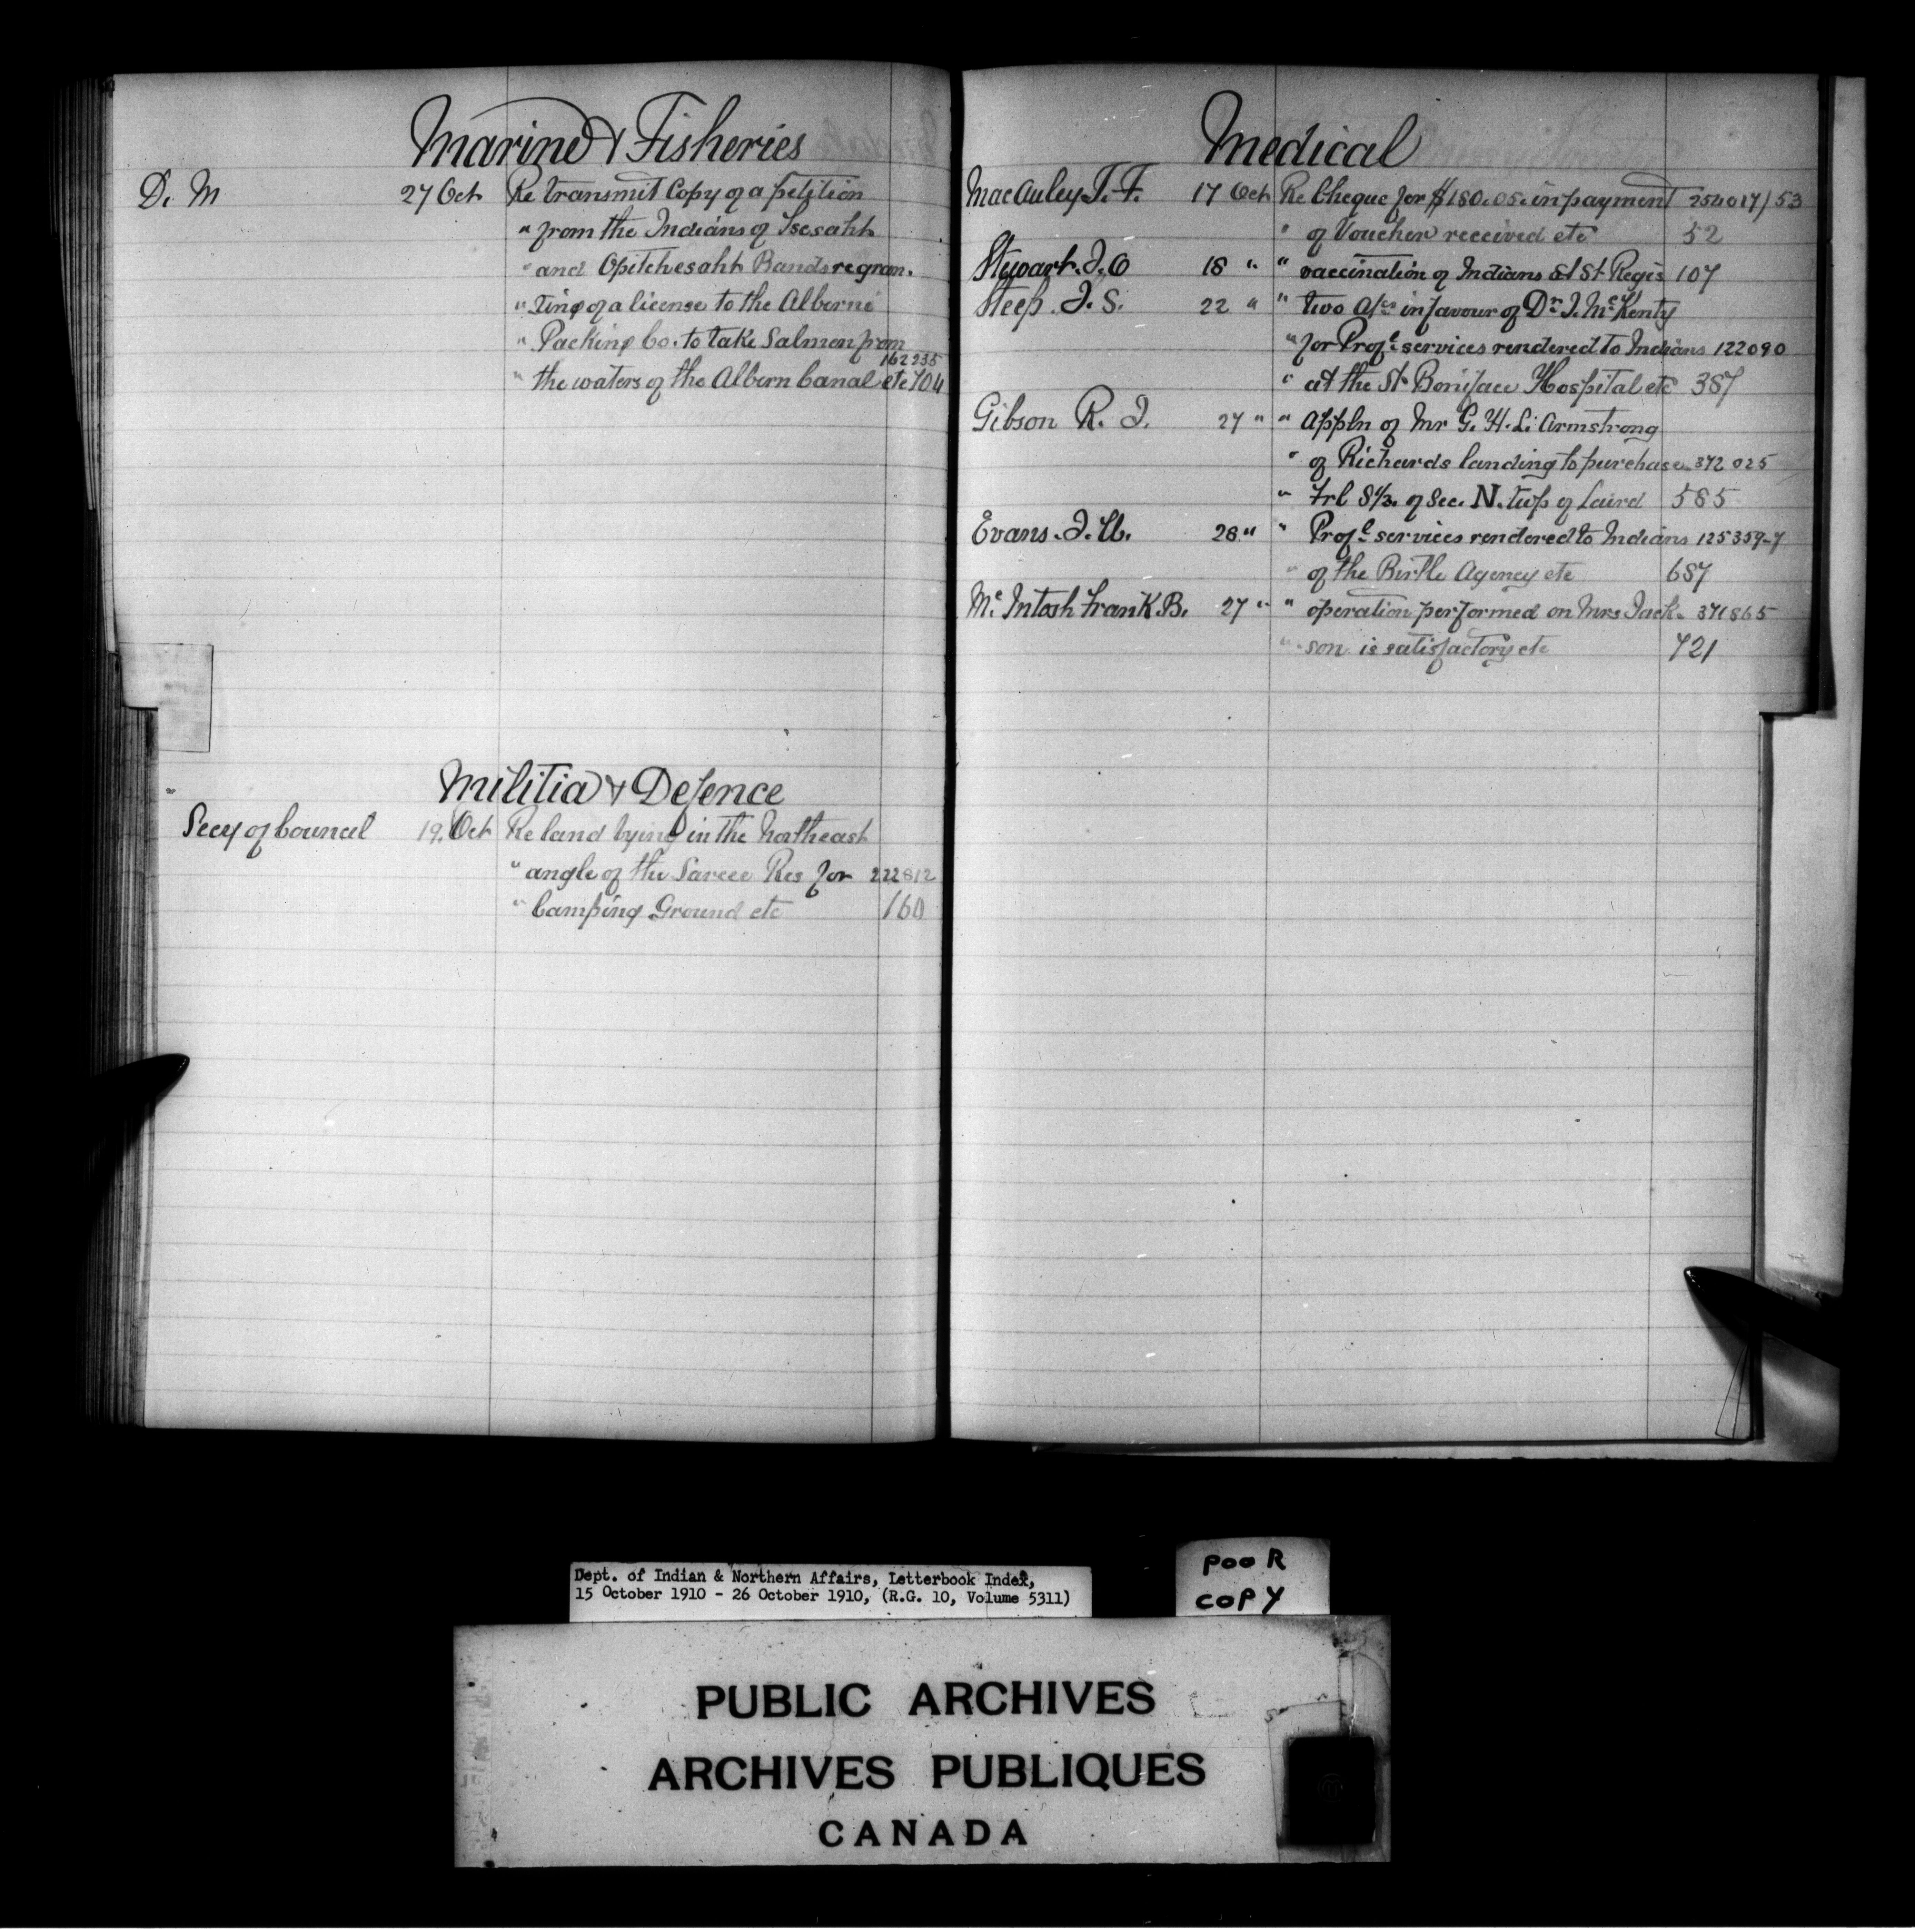 Marine & Fisheries
D. M 27 Oct Re transmit Copy of a petition
" from the Indians of Tsesaht
" and Opitchesaht Bands re gran.
" ting of a license to the Alberni
" Packing Co. to take Salmon from
162235
" the waters of the Albern Canal etc 704
Militia & Defence
Secy of Council 19. Oct Re land lying in the Northeast
" angle of the Sarcee Res for 222812
" Camping Ground etc 160
Medical
MacAuley T. F. 17 Oct Re Cheque for $180.05. in payment 254017/53
" of Voucher received etc 52
Stewart. J. O 18 " " vaccination of Indians at St Regis 107
Steep. J. S. 22 " " two a/cs in favour of Dr. J. McKenty
" for Profl. services rendered to Indians 122090
" at the St. Boniface Hospital etc 387
Gibson R. J. 27 " " appln of Mr G. H. L. Armstrong
" of Richards landing to purchase 372025
" Frl S½. of Sec. N. twp of Laird 585
Evans. J. W. 28 " " Profl. services rendered to Indians 125359-7
" of the Birtle Agency etc 687
Mc.Intosh Frank B. 27 " " operation performed on Mrs Jack. 371865
" son is satisfactory etc 721
Dept. of Indian & Northern Affairs, Letterbook Index,
15 October 1910 - 26 October 1910, (R.G. 10, Volume 5311)
POOR
COPY
PUBLIC ARCHIVES
ARCHIVES PUBLIQUES
CANADA